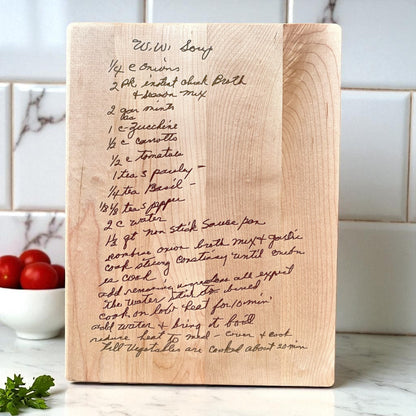 W.W. Soup
1/4 c onions
2 Pk instant chick Broth
& season mix
2 gar mints
tea
1 c Zucchine
1/2 c carrotts
1/2 c tomatoes
1 tea s parsly -
1/4 tea Basil -
1/8 tea s pepper
2 c water
1 1/2 qt non stick sauce pan
combine onion broth mix & garlic
cook string constincy until onion
is cook
add remaining ingredience all except
the water stir to
cook on low heat for 10 min
add water & bring it to boill
reduce heat to med - cover & cook
till vegetables are cooked about 20 min